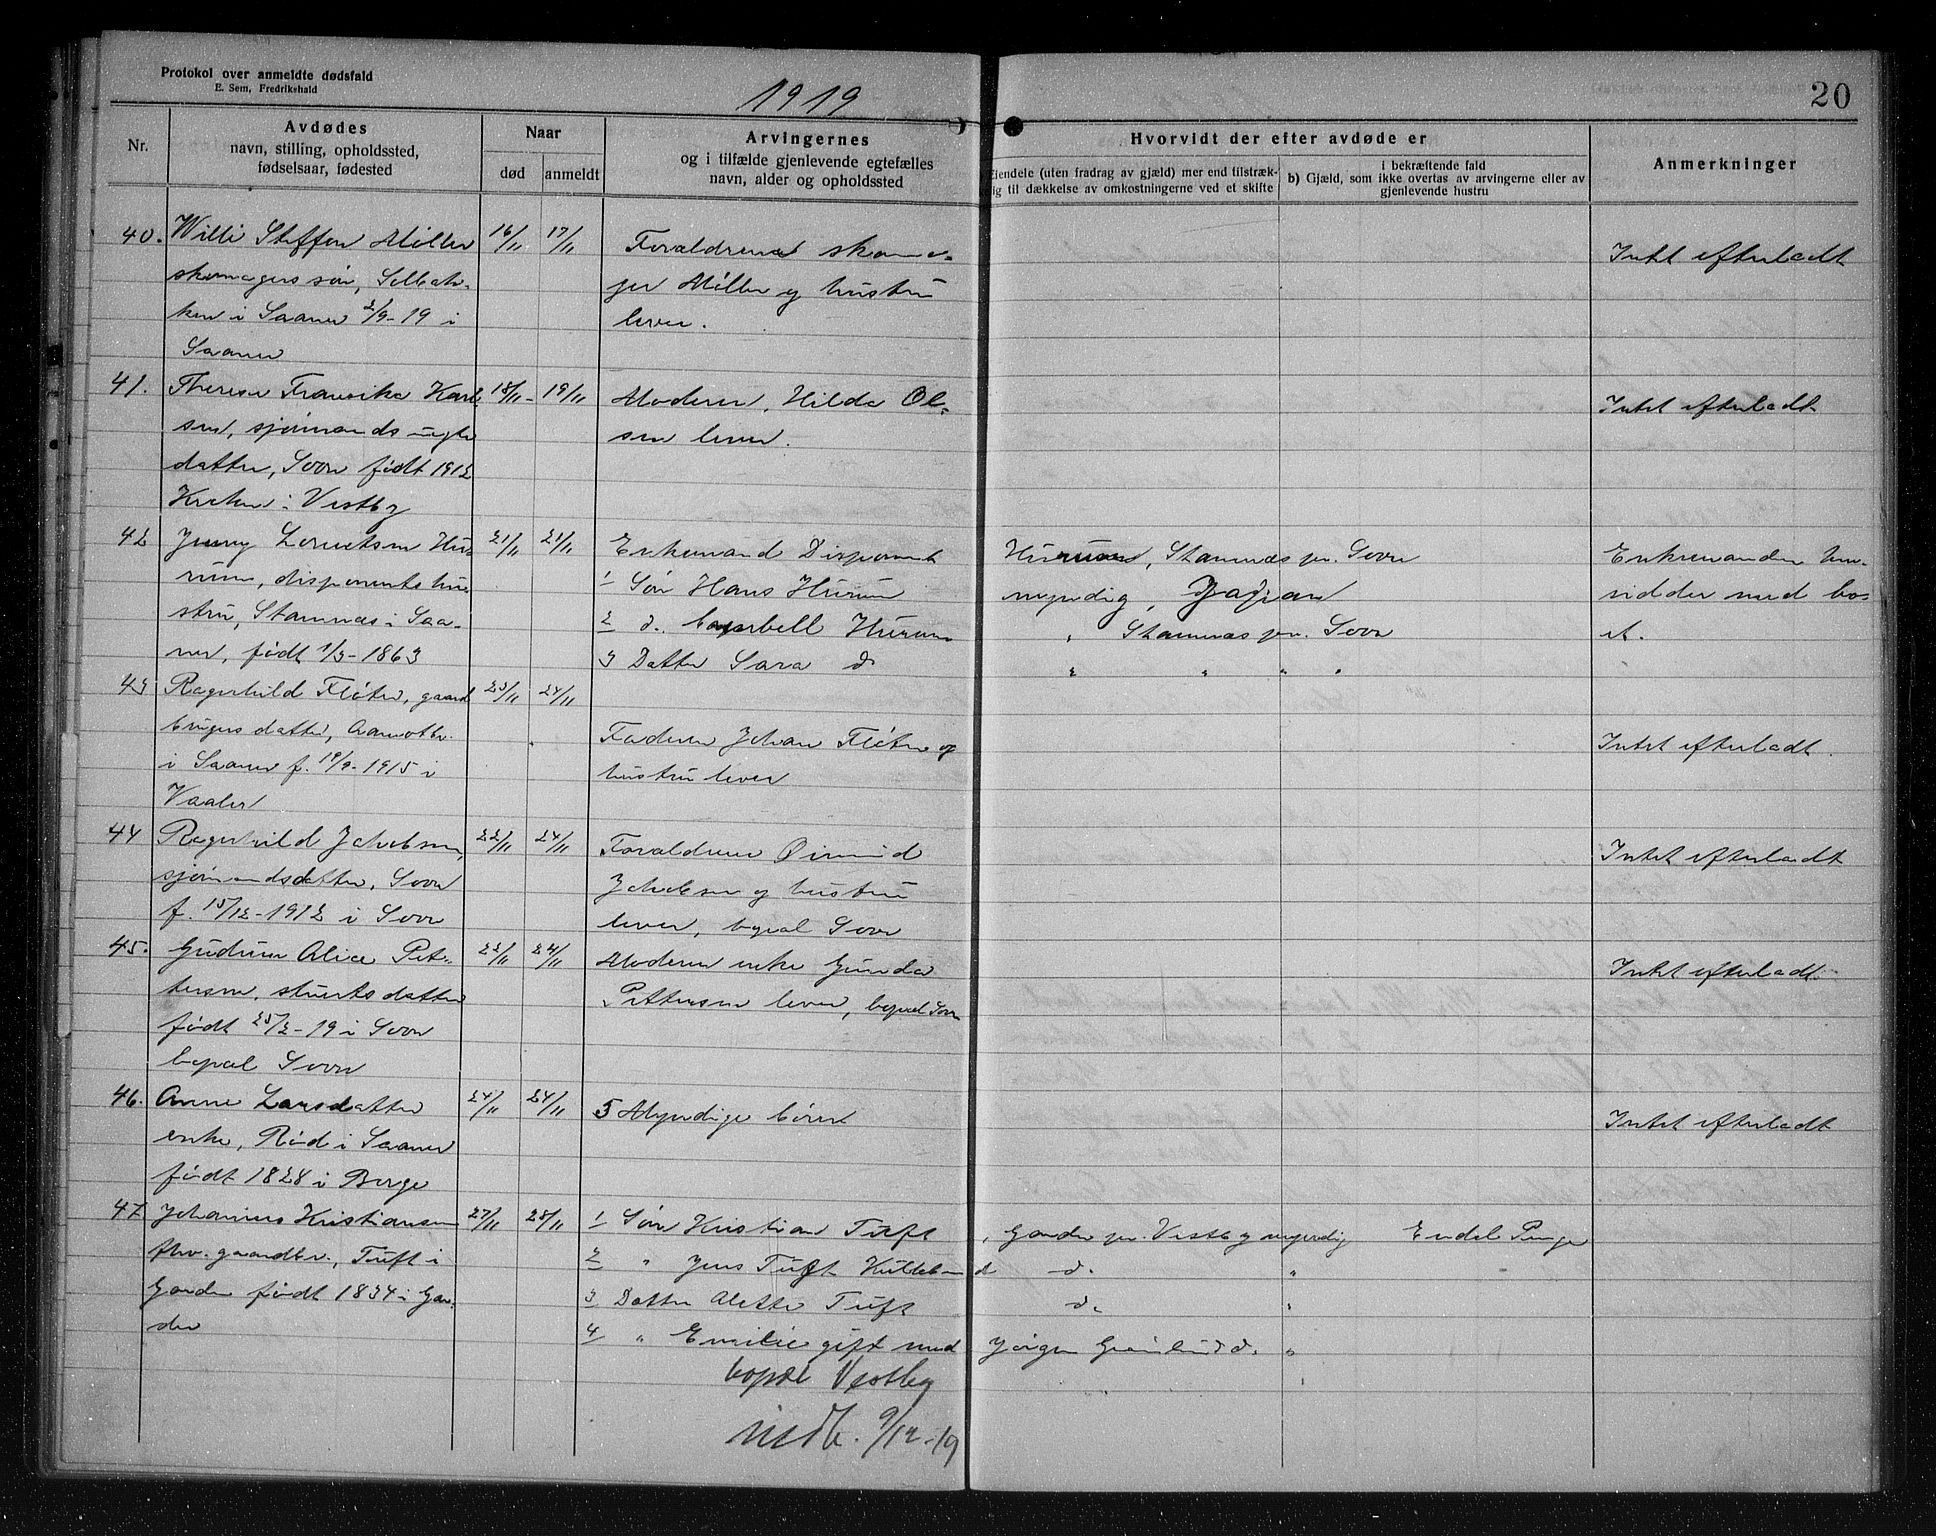 Protokol over anmeldte dødsfald
E. Sem, Fredrikshald
1919
20
Nr.
Avdødes
navn, stilling, opholdssted,
fødselsaar, fødested
Naar
død
anmeldt
Arvingernes
og i tilfælde gjenlevende egtefælles
navn, alder og opholdssted
Hvorvidt der efter avdøde er
Eiendele (uten fradrag av gjæld) mer end tilstræk-
lig til dækkelse av omkostningerne ved et skifte
i bekræftende fald
b) Gjæld, som ikke overtas av arvingerne eller av
gjenlevende hustru
Anmerkninger
40. Willi Steffen Møller 16/11 17/11 Forældrene skoma- Intet efterladt
skomagers søn, ger Møller og hustru
ken i Saaner 2/9-19 i lever.
Saaner
41. Therese Karl 18/11 - 19/11 Moderen, Hilda Ol- Intet efterladt
sen, sjømands sen lever.
datter, Soon født 1912
i Vestby
42 Jenny Lorentsen Hu 21/11 21/11 Enkemand Disponent Hurum, Stamnæs pr. Soon Enkemanden hen-
rum, disponents hu- 1 Søn Hans Hurum myndig, Japan sidder med bo-
stru, Stamnæs i Saa- 2 d. Hurum " Stamnæs pr. Soon et.
ner, født 1/3-1863 3 Datter Sara do " " " "
43 Ragnhild Fløter, gaard 23/11 24/11
brugers datter, Faderen Johan Fløter og Intet efterladt.
i Saaner f. 19/9-1915 i hustru lever
Vaaler
44 Ragnhild Jakobsen, 22/11 24/11 Forældrene Intet efterladt
sjømandsdatter, Soon Jakobsen og hustru
f. 15/12-1912 i Soon lever, bopæl Soon
45. Gudrun Alice Pet- 22/11 24/11 Moderen enke Gunda Intet efterladt.
tersen, stuerts datter Pettersen lever, bopæl Soon
født 25/2-19 i Soon
bopæl Soon
46. Anne Larsdatter 24/11 24/11 5 Myndige børn Intet efterladt
enke, Rød i Saaner
født 1828 i Borge
47. Johannes Kristiansen 27/11 28/11 1 Søn Kristian Tuft, Garder pr. Vestby myndig Endel Penge
fhv. gaardbr., Tuft i 2 " Jens Tuft d. "
Garder født 1834 i Gar- 3 Datter Alette Tuft d. "
der 4 " Emilie gift med Jørgen Grønlund d. "
bopæl Vestby
medb. 9/12-19